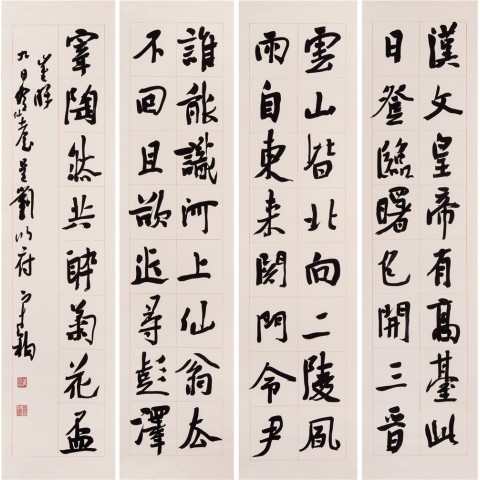 漢文皇帝有高臺此
日登臨曙色開三晉
雲山皆北向二陵風
雨自東来関門令尹
誰能識河上仙翁去
不回且欲近尋彭澤
宰陶然共醉菊花盃
崔曙
九日登仙臺呈劉明府